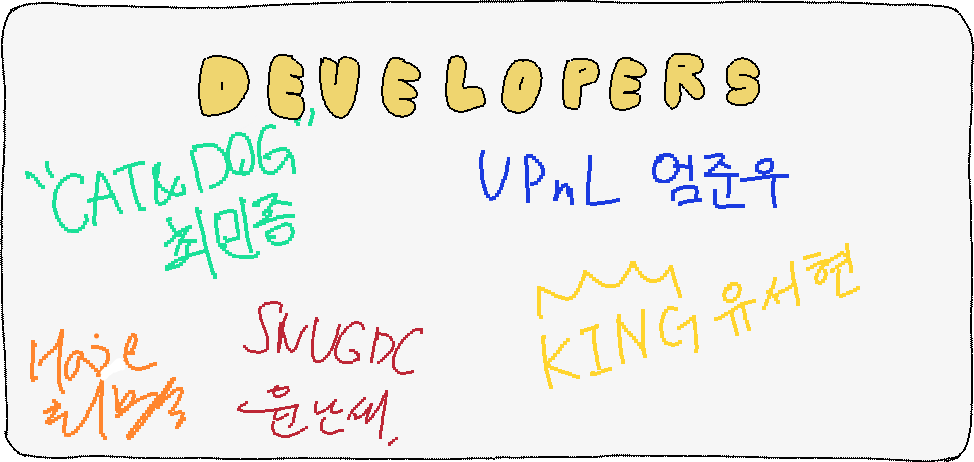 DEVELOPERS
"CAT&DOG"
최민종
UPnL 엄준우
KING 유서현
SNUGDC
윤난새